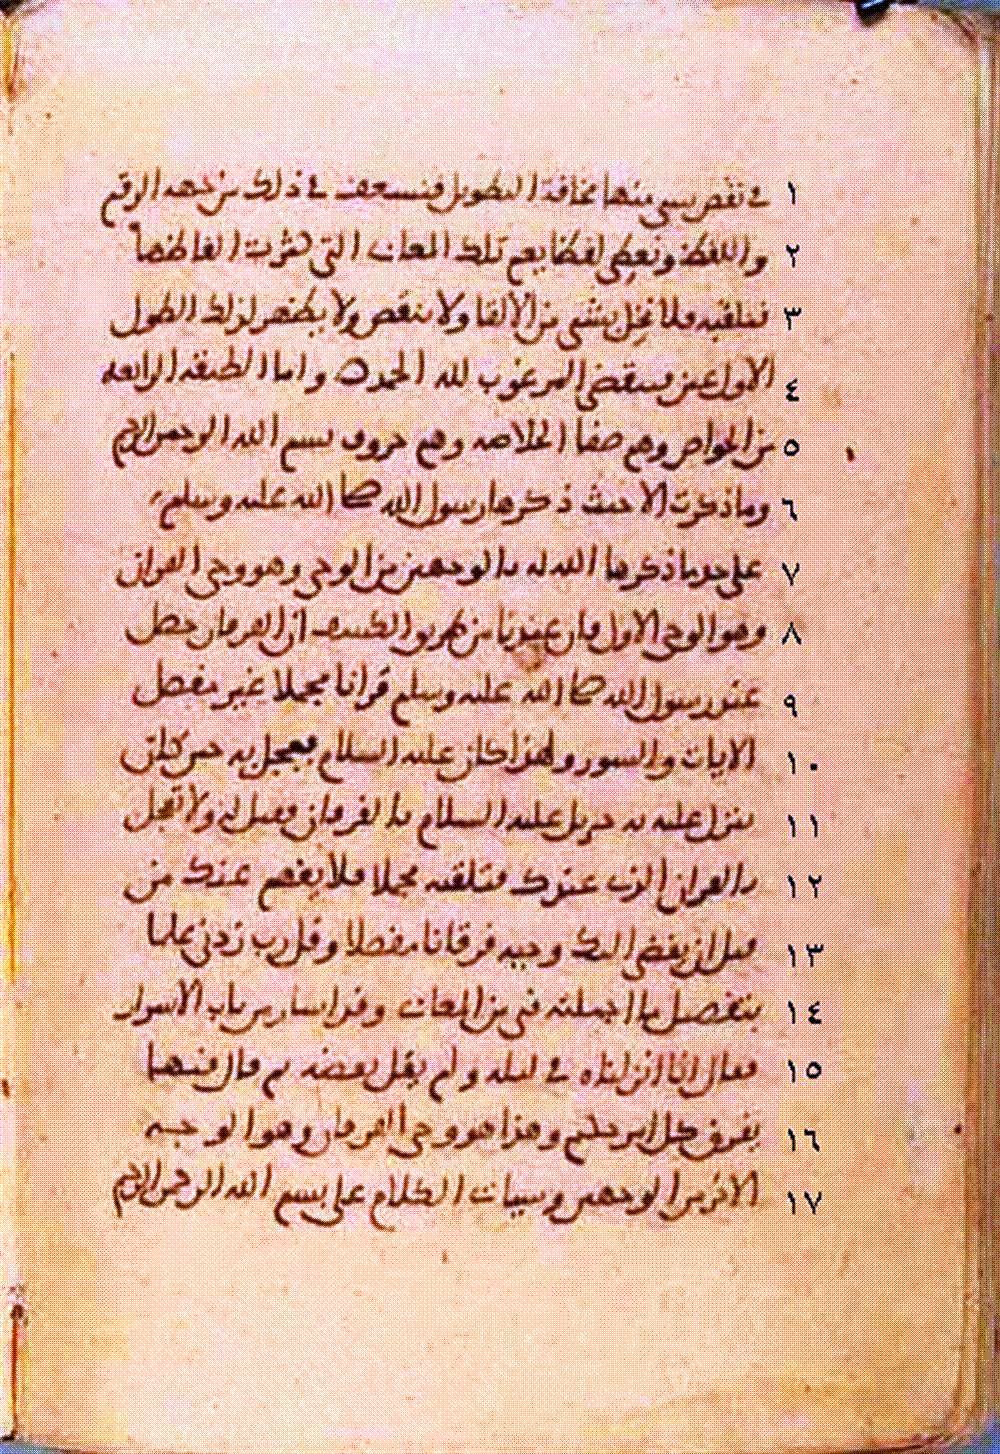 ١ في نقص شيء منها مخافة التطويل فنسعف في ذلك من جهة الرقم
٢ واللفظ ونعطي لفظا يعم تلك المعاني التي كثرت الفاظها
٣ فنلقيه فلا نخل بشيء من الالقا ولا ننقص ولا يظهر لذلك الطول
٤ الاول عين فينقضي المرغوب لله الحمد واما الطبقة الرابعة
٥ من الخواص وهم صفا الخلاصة وهم حروف بسم الله الرحمن الرحيم
٦ وما ذكرت الا حيث ذكرها رسول الله صلى الله عليه وسلم
٧ على حد ما ذكرها الله له بالوجهين من الوحي وهو وحي القران
٨ وهو الوحي الاول فان عندنا من طريق الكشف ان الفرقان حصل
٩ عند رسول الله صلى الله عليه وسلم قرانا مجملا غير مفصل
١٠ الايات والسور ولهذا كان عليه السلام يعجل به حين كان
١١ ينزل عليه به جبريل عليه السلام بالفرقان فقيل له ولا تعجل
١٢ بالقران الذي عندك فتلقيه مجملا فلا يفهم عنك من
١٣ قبل ان يقضى اليك وحيه فرقانا مفصلا وقل رب زدني علما
١٤ بتفصيل ما اجملته في من المعاني وقد اشار من باب الاسرار
١٥ فقال انا انزلناه في ليلة ولم يقل بعضه ثم قال فيها
١٦ يفرق كل امر حكيم وهذا هو وحي الفرقان وهو الوجه
١٧ الاخر من الوجهين وسيات الكلام على بسم الله الرحمن الرحيم